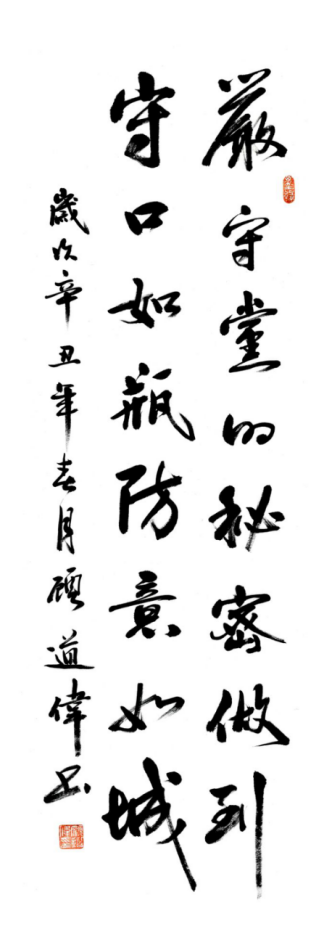 嚴守黨的秘密做到
守口如瓶防意如城
歲次辛丑年春月顧道偉書